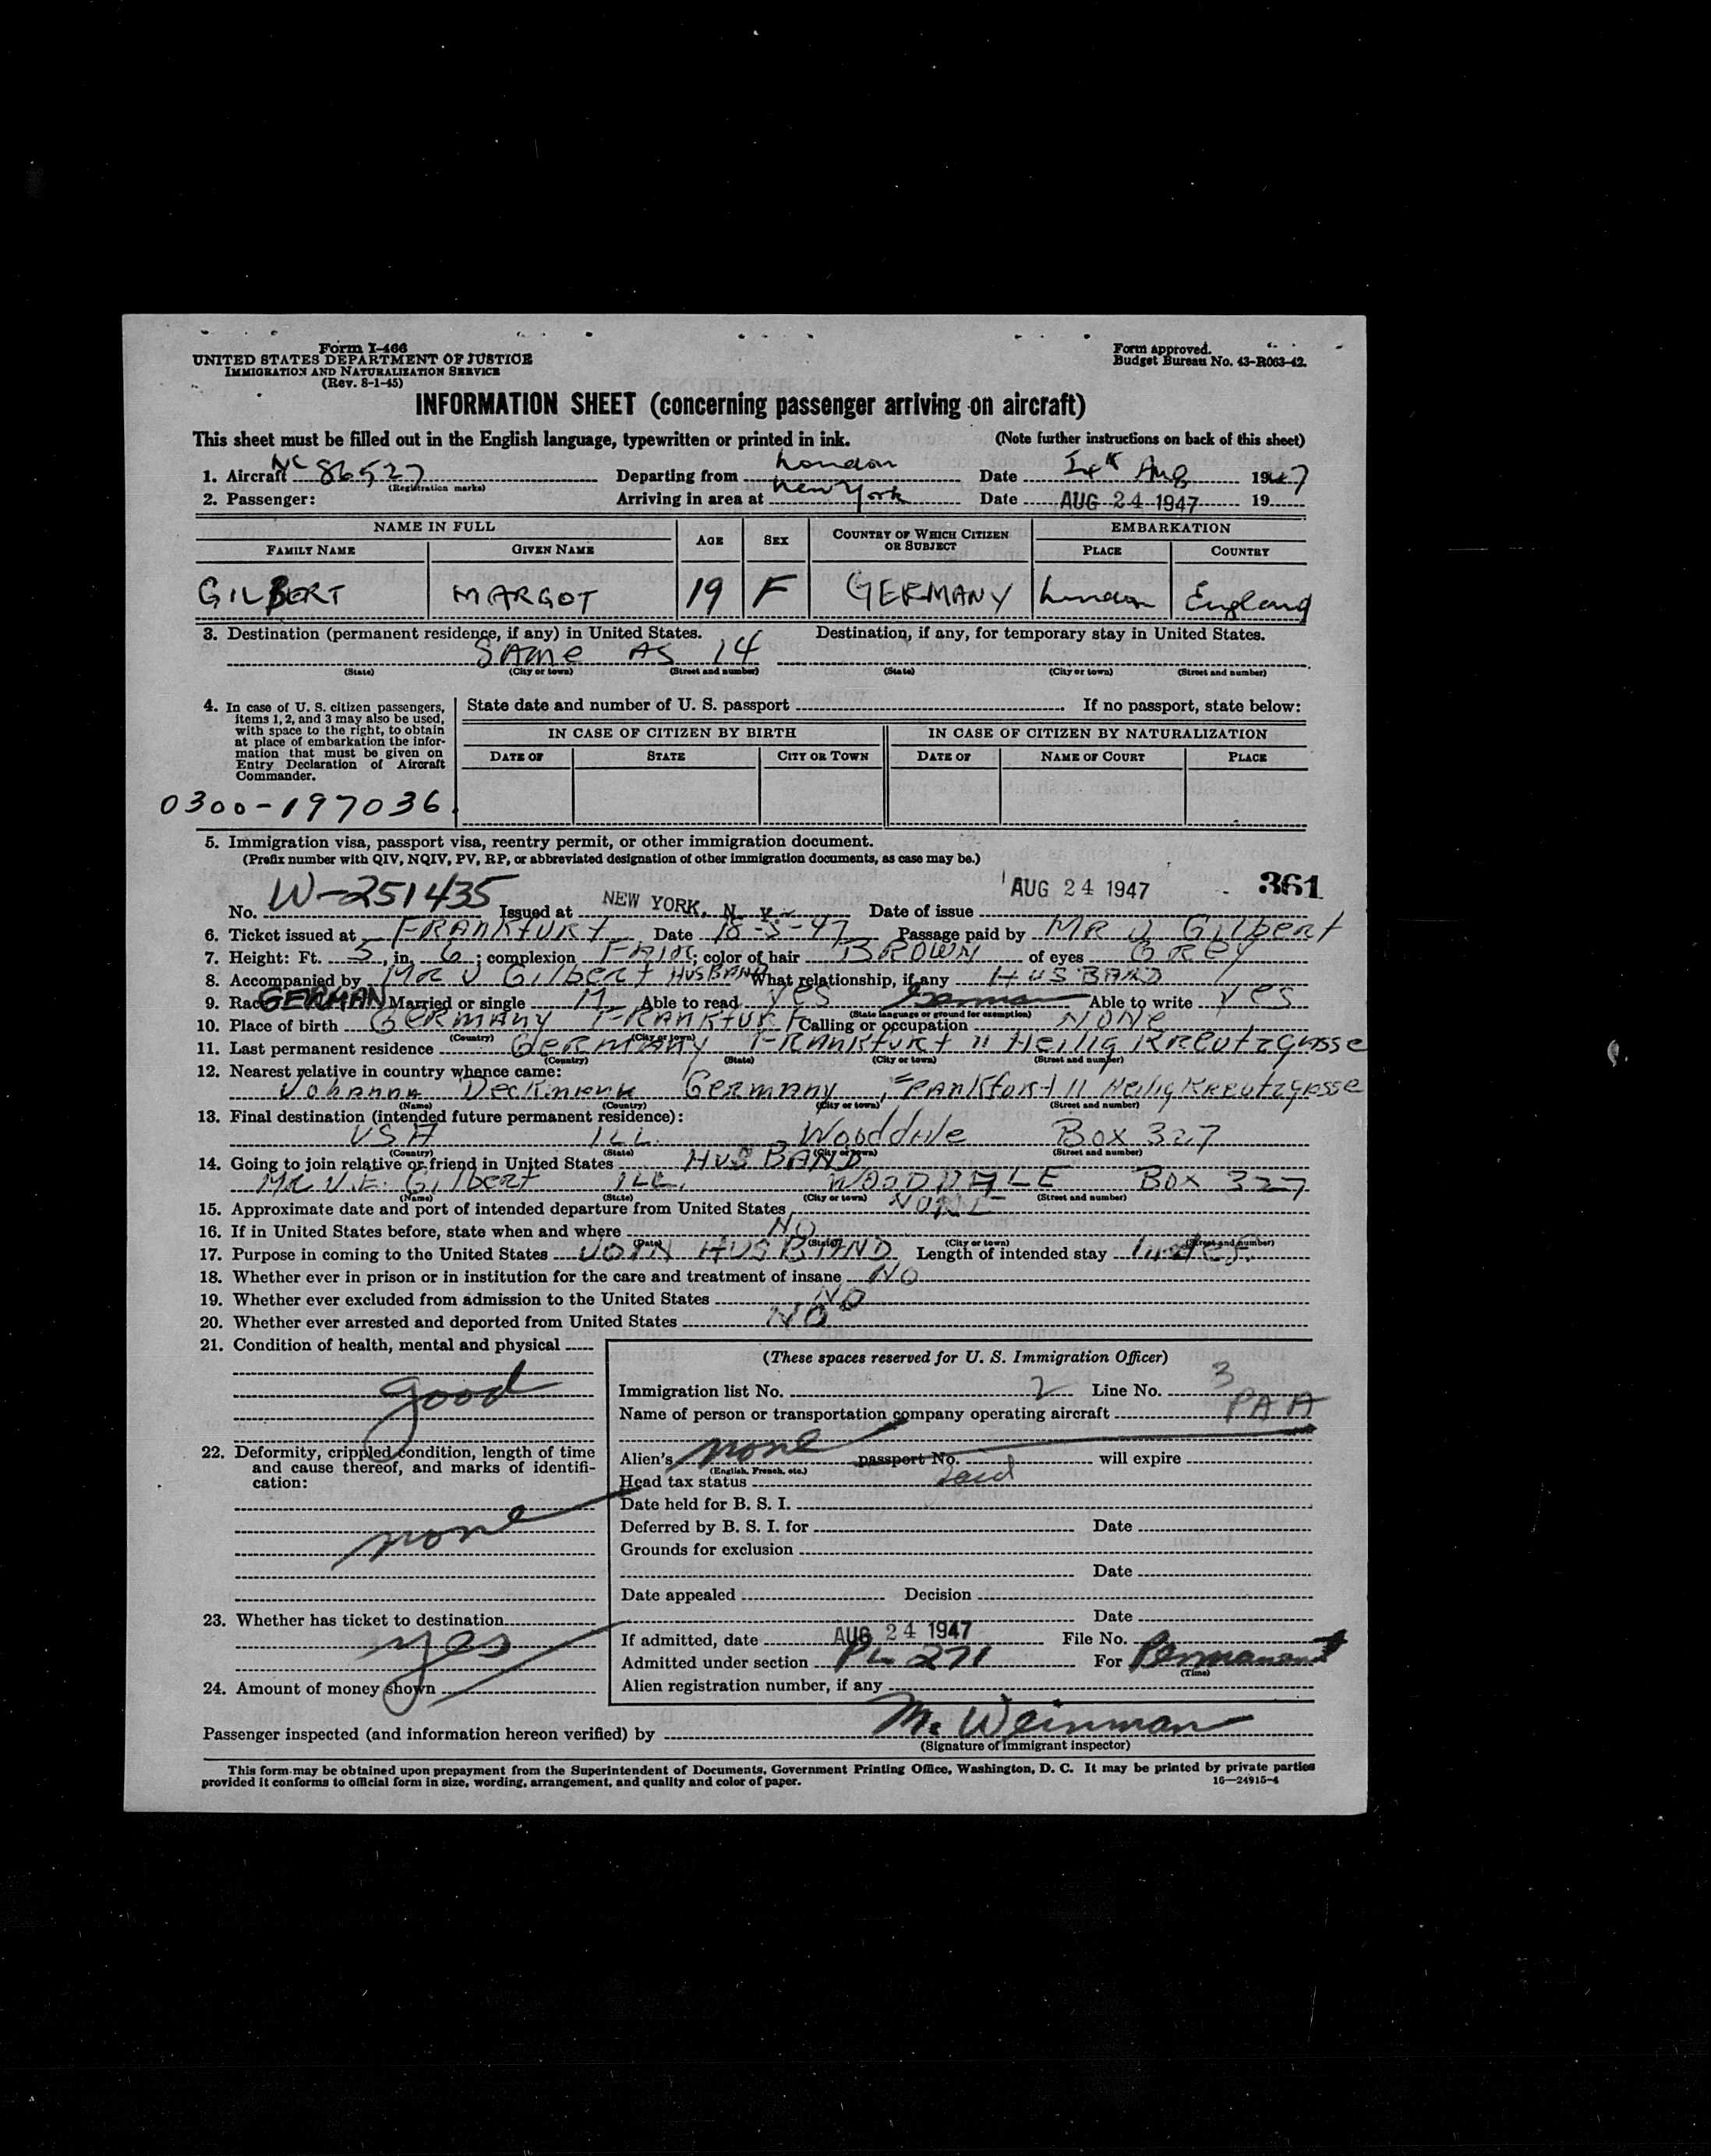 Form I-466
UNITED STATES DEPARTMENT OF JUSTICE
IMMIGRATION AND NATURALIZATION SERVICE
(Rev. 8-1-45)
Form approved.
Budget Bureau No. 43-R063-42.
INFORMATION SHEET (concerning passenger arriving on aircraft)
This sheet must be filled out in the English language, typewritten or printed in ink. (Note further instructions on back of this sheet)
1. Aircraft NC 86527 Departing from London Date Aug 1947
(Registration marks)
2. Passenger: Arriving in area at New York Date AUG 24 1947 19
NAME IN FULL AGE SEX COUNTRY OF WHICH CITIZEN OR SUBJECT EMBARKATION
FAMILY NAME GIVEN NAME PLACE COUNTRY
GILBERT MARGOT 19 F GERMANY London England
3. Destination (permanent residence, if any) in United States. Destination, if any, for temporary stay in United States.
SAme AS 14
(State) (City or town) (Street and number) (State) (City or town) (Street and number)
4. In case of U. S. citizen passengers,
items 1, 2, and 3 may also be used,
with space to the right, to obtain
at place of embarkation the infor-
mation that must be given on
Entry Declaration of Aircraft
Commander.
State date and number of U. S. passport If no passport, state below:
IN CASE OF CITIZEN BY BIRTH IN CASE OF CITIZEN BY NATURALIZATION
DATE OF STATE CITY OR TOWN DATE OF NAME OF COURT PLACE
0300-197036
5. Immigration visa, passport visa, reentry permit, or other immigration document.
(Prefix number with QIV, NQIV, PV, RP, or abbreviated designation of other immigration documents, as case may be.)
No. W-251435 Issued at NEW YORK, N. Y. Date of issue AUG 24 1947 361
6. Ticket issued at FRANKFURT Date 18-5-47 Passage paid by MR J Gilbert
7. Height: Ft. 5, in. 6; complexion FAIR; color of hair BROWN of eyes GREY
8. Accompanied by MR J Gilbert HUSBAND What relationship, if any HUSBAND
9. Race GERMAN Married or single M Able to read yes German Able to write yes
(State language or ground for exemption)
10. Place of birth GERMANY FRANKFURT Calling or occupation NONE
(Country) (City or town)
11. Last permanent residence GERMANY FRANKfurt 11 Heilig KReutzgasse
(Country) (State) (City or town) (Street and number)
12. Nearest relative in country whence came:
Johanna Germany, FRANKfort 11 Heilig KReutzgasse
(Name) (Country) (City or town) (Street and number)
13. Final destination (intended future permanent residence):
USA ILL. Wooddale Box 327
(Country) (State) (City or town) (Street and number)
14. Going to join relative or friend in United States HUSBAND
MR J.E. Gilbert ILL. WOODDALE Box 327
(Name) (State) (City or town) (Street and number)
15. Approximate date and port of intended departure from United States NONE
16. If in United States before, state when and where NO
(Date) (State) (City or town) (Street and number)
17. Purpose in coming to the United States JOIN HUSBAND Length of intended stay Indef.
18. Whether ever in prison or in institution for the care and treatment of insane NO
19. Whether ever excluded from admission to the United States NO
20. Whether ever arrested and deported from United States NO
21. Condition of health, mental and physical
good
22. Deformity, crippled condition, length of time
and cause thereof, and marks of identifi-
cation:
none
23. Whether has ticket to destination
yes
24. Amount of money shown
(These spaces reserved for U. S. Immigration Officer)
Immigration list No. 2 Line No. 3
Name of person or transportation company operating aircraft PAA
Alien's none passport No. will expire
(English, French, etc.)
Head tax status
Date held for B. S. I.
Deferred by B. S. I. for Date
Grounds for exclusion
Date
Date appealed Decision
Date
If admitted, date AUG 24 1947 File No.
Admitted under section PL 271 For Permanent
(Time)
Alien registration number, if any
Passenger inspected (and information hereon verified) by M. Weinman
(Signature of immigrant inspector)
This form may be obtained upon prepayment from the Superintendent of Documents, Government Printing Office, Washington, D. C. It may be printed by private parties
provided it conforms to official form in size, wording, arrangement, and quality and color of paper. 16—24915-4